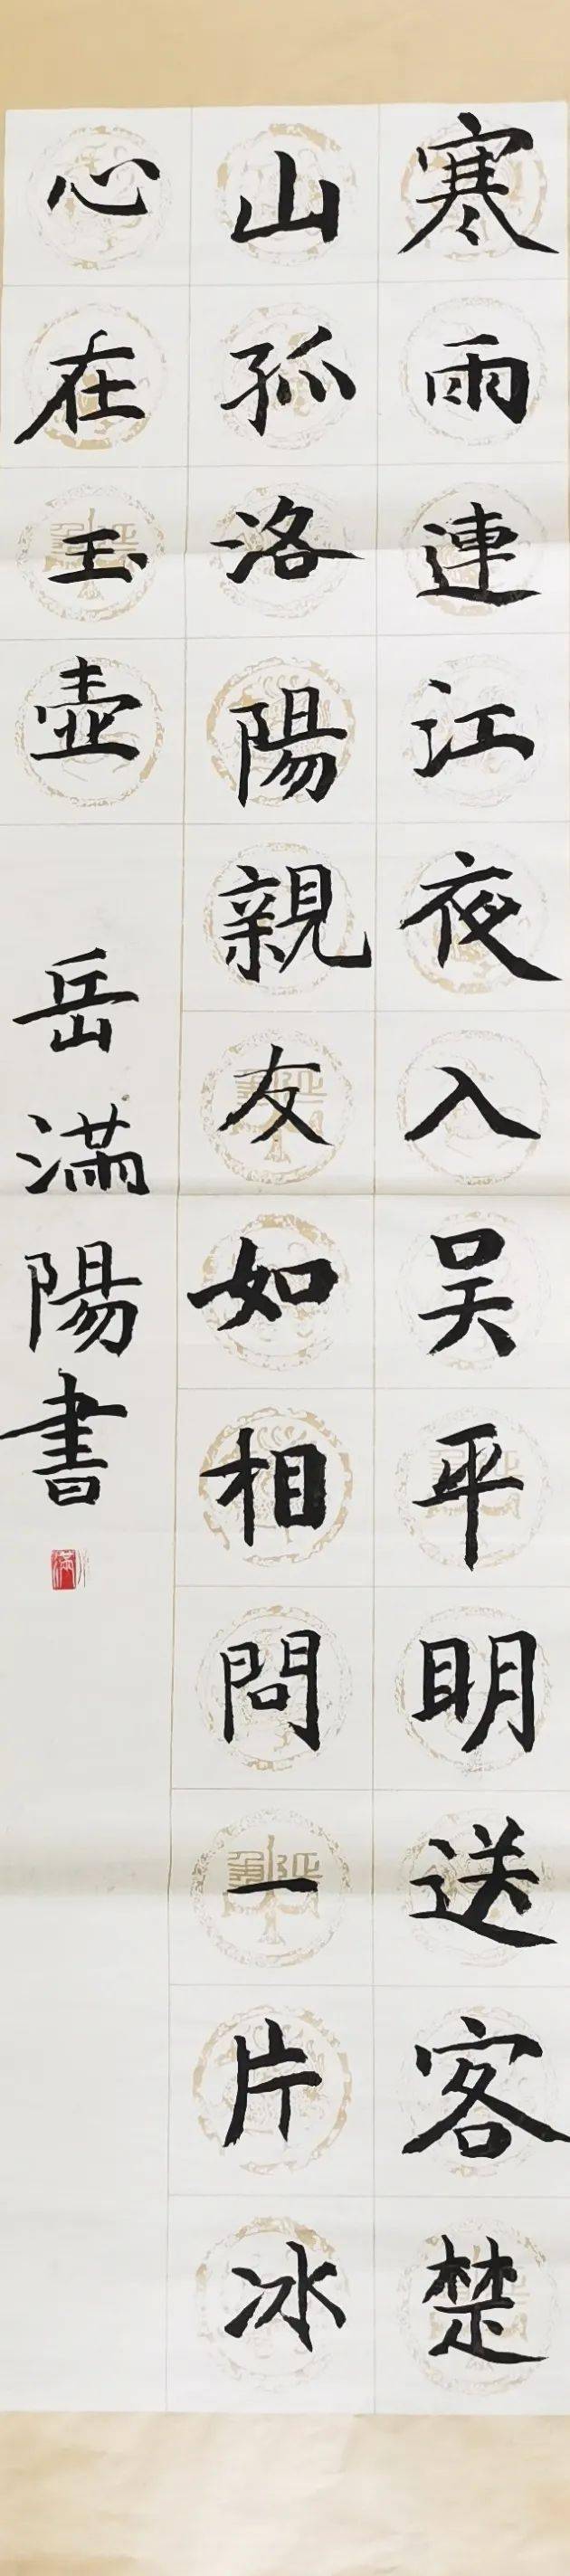 寒雨連江夜入吴平明送客楚
山孤洛陽親友如相問一片冰
心在玉壺
岳滿陽書
滿